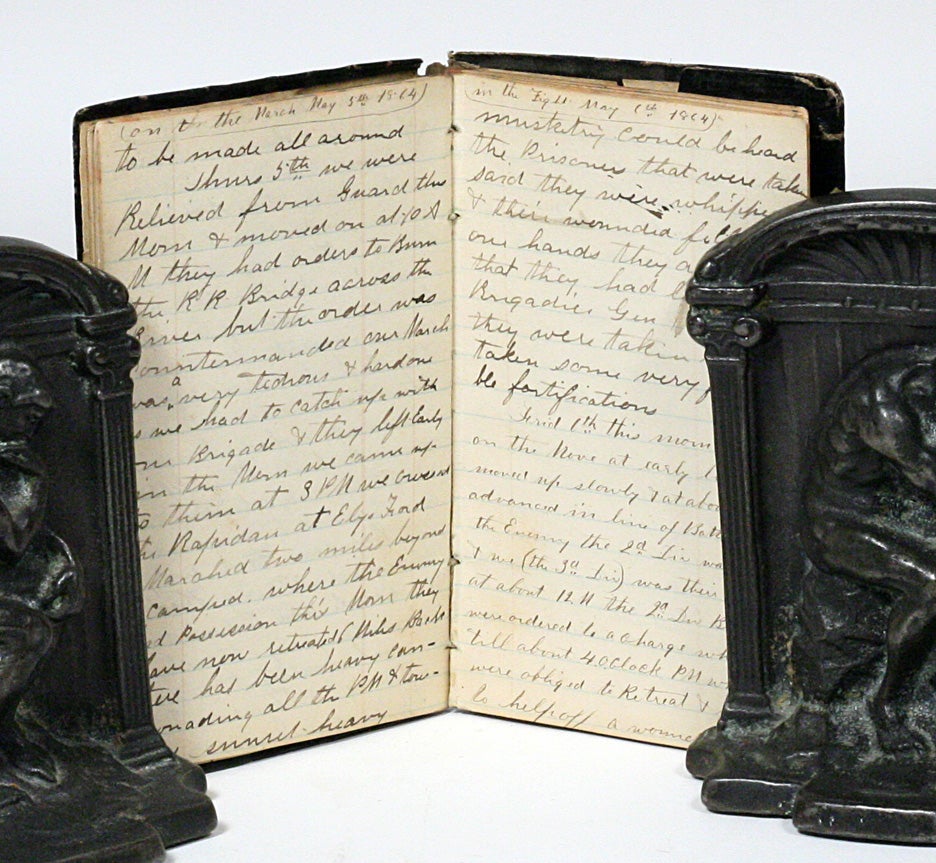 (on the March May 5th 1864)
to be made all around
Thurs 5th we were
Relieved from Guard this
Morn & moved on at 10 A
M they had orders to Burn
the R R Bridge across the
River but the order was
countermanded our March
was a very tedious & hard one
as we had to catch up with
our Brigade & they left Early
in the Morn we came up
to them at 3 PM we crossed
the Rapidan at Elys Ford
Marched two miles beyond
camped. where the Enemy
Possession this Morn they
have now retreated 6 Miles Back
there has been heavy can-
onading all the PM & tow-
sunset heavy
(in the Fight May 6th 1864)
musketry could be heard
the Prisoners that were taken
said they were whipped
& their wounded
our hands they
that they had
Brigadier Gen
they were taking
taken some very
ble fortifications
Frid 6th this morn
on the Move at early
moved up slowly & at abou
advanced in line of Batt
the Enemy the 2d Div wa
& we (the 3d Div) was thir
at about 12 M the 2d Div
were ordered to a charge wh
till about 4 OClock PM w
were obliged to Retreat &
to help off a wounde